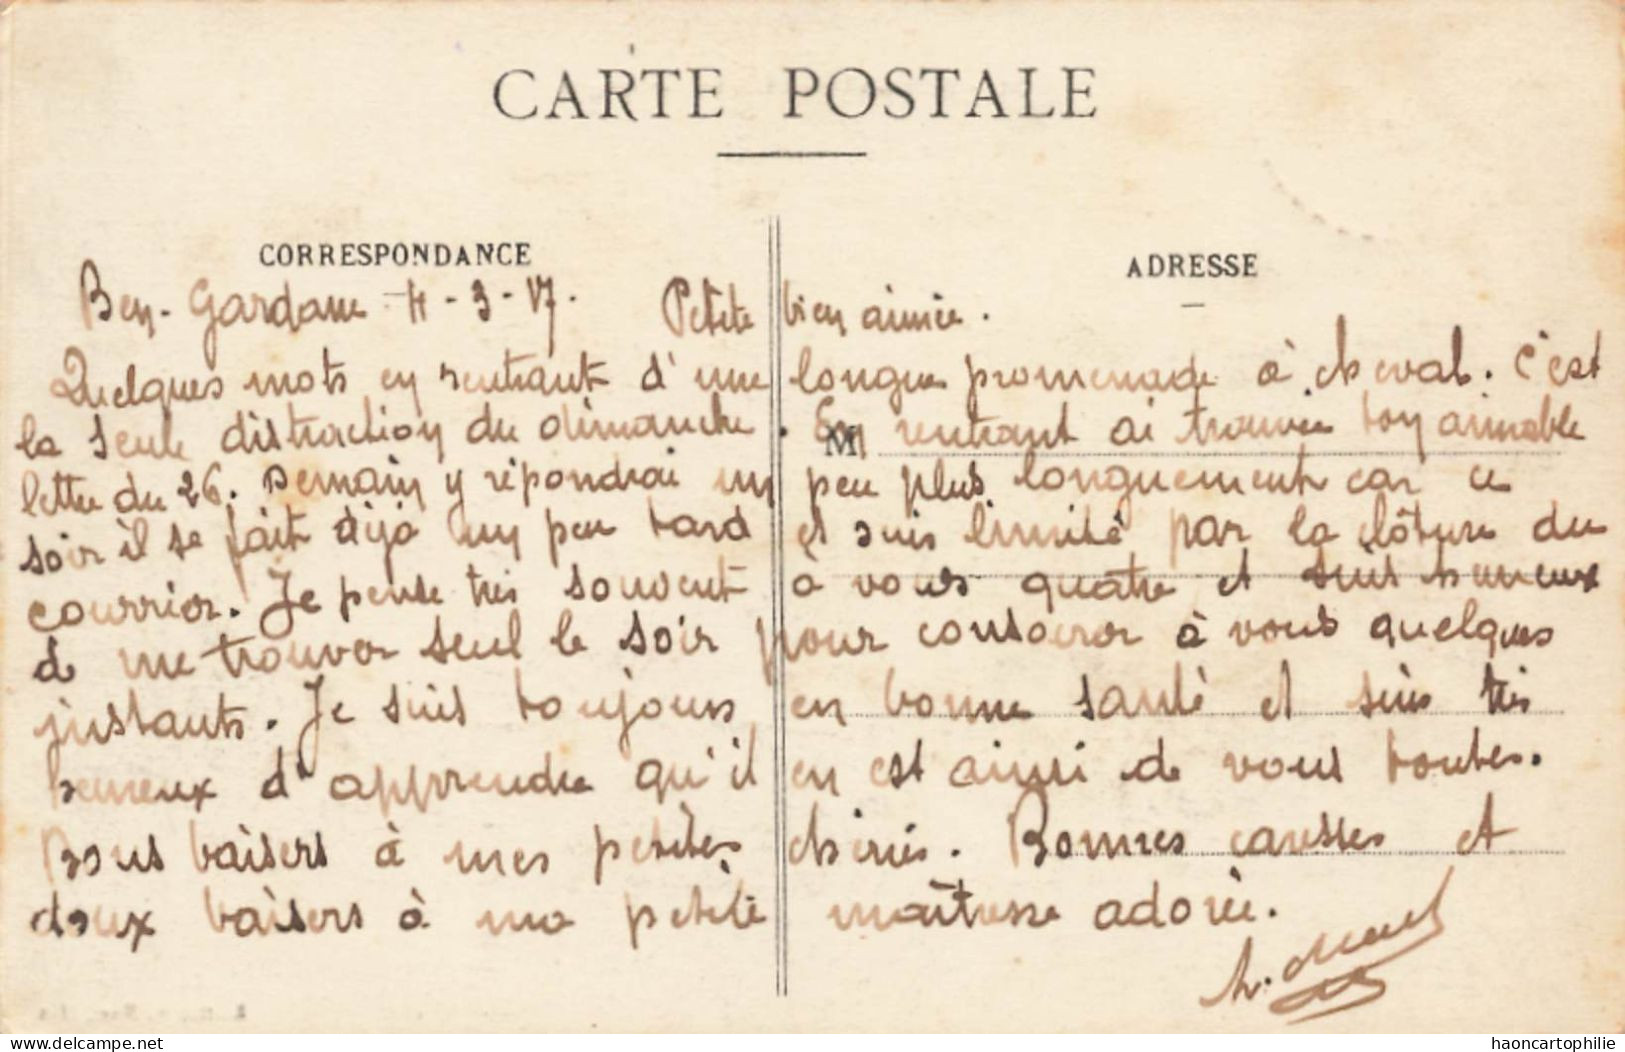 CARTE POSTALE
CORRESPONDANCE
ADRESSE
Ben-Gardane 4-3-17. Petite bien aimée.
Quelques mots en rentrant d'une longue promenade à cheval. C'est
la seule distraction du dimanche. En rentrant ai trouvé ton aimable
M
lettre du 26. Demain y répondrai un peu plus longuement car ce
soir il se fait déjà un peu tard et suis limité par la clôture du
courrier. Je pense très souvent à vous quatre et suis heureux
de me trouver seul le soir pour consacrer à vous quelques
instants. Je suis toujours en bonne santé et suis très
heureux d'apprendre qu'il en est ainsi de vous toutes.
Bons baisers à mes petites chéries. Bonnes caresses et
doux baisers à ma petite maîtresse adorée.
www.delcampe.net
haoncartophilie